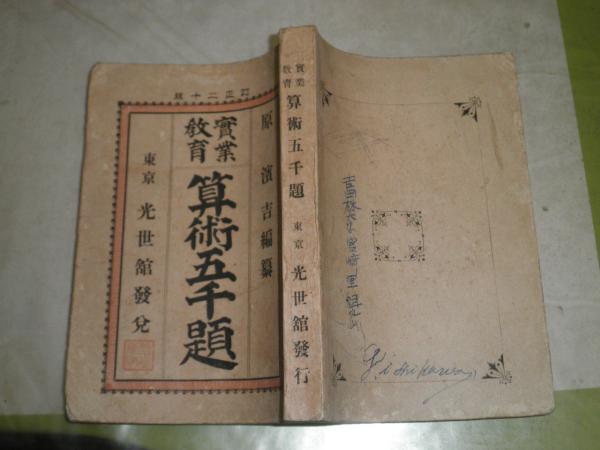 訂正二十版
原濱吉編纂
實業
教育
算術五千題
東京 光世館發兌
實業
教育
算術五千題
東京
光世館發行